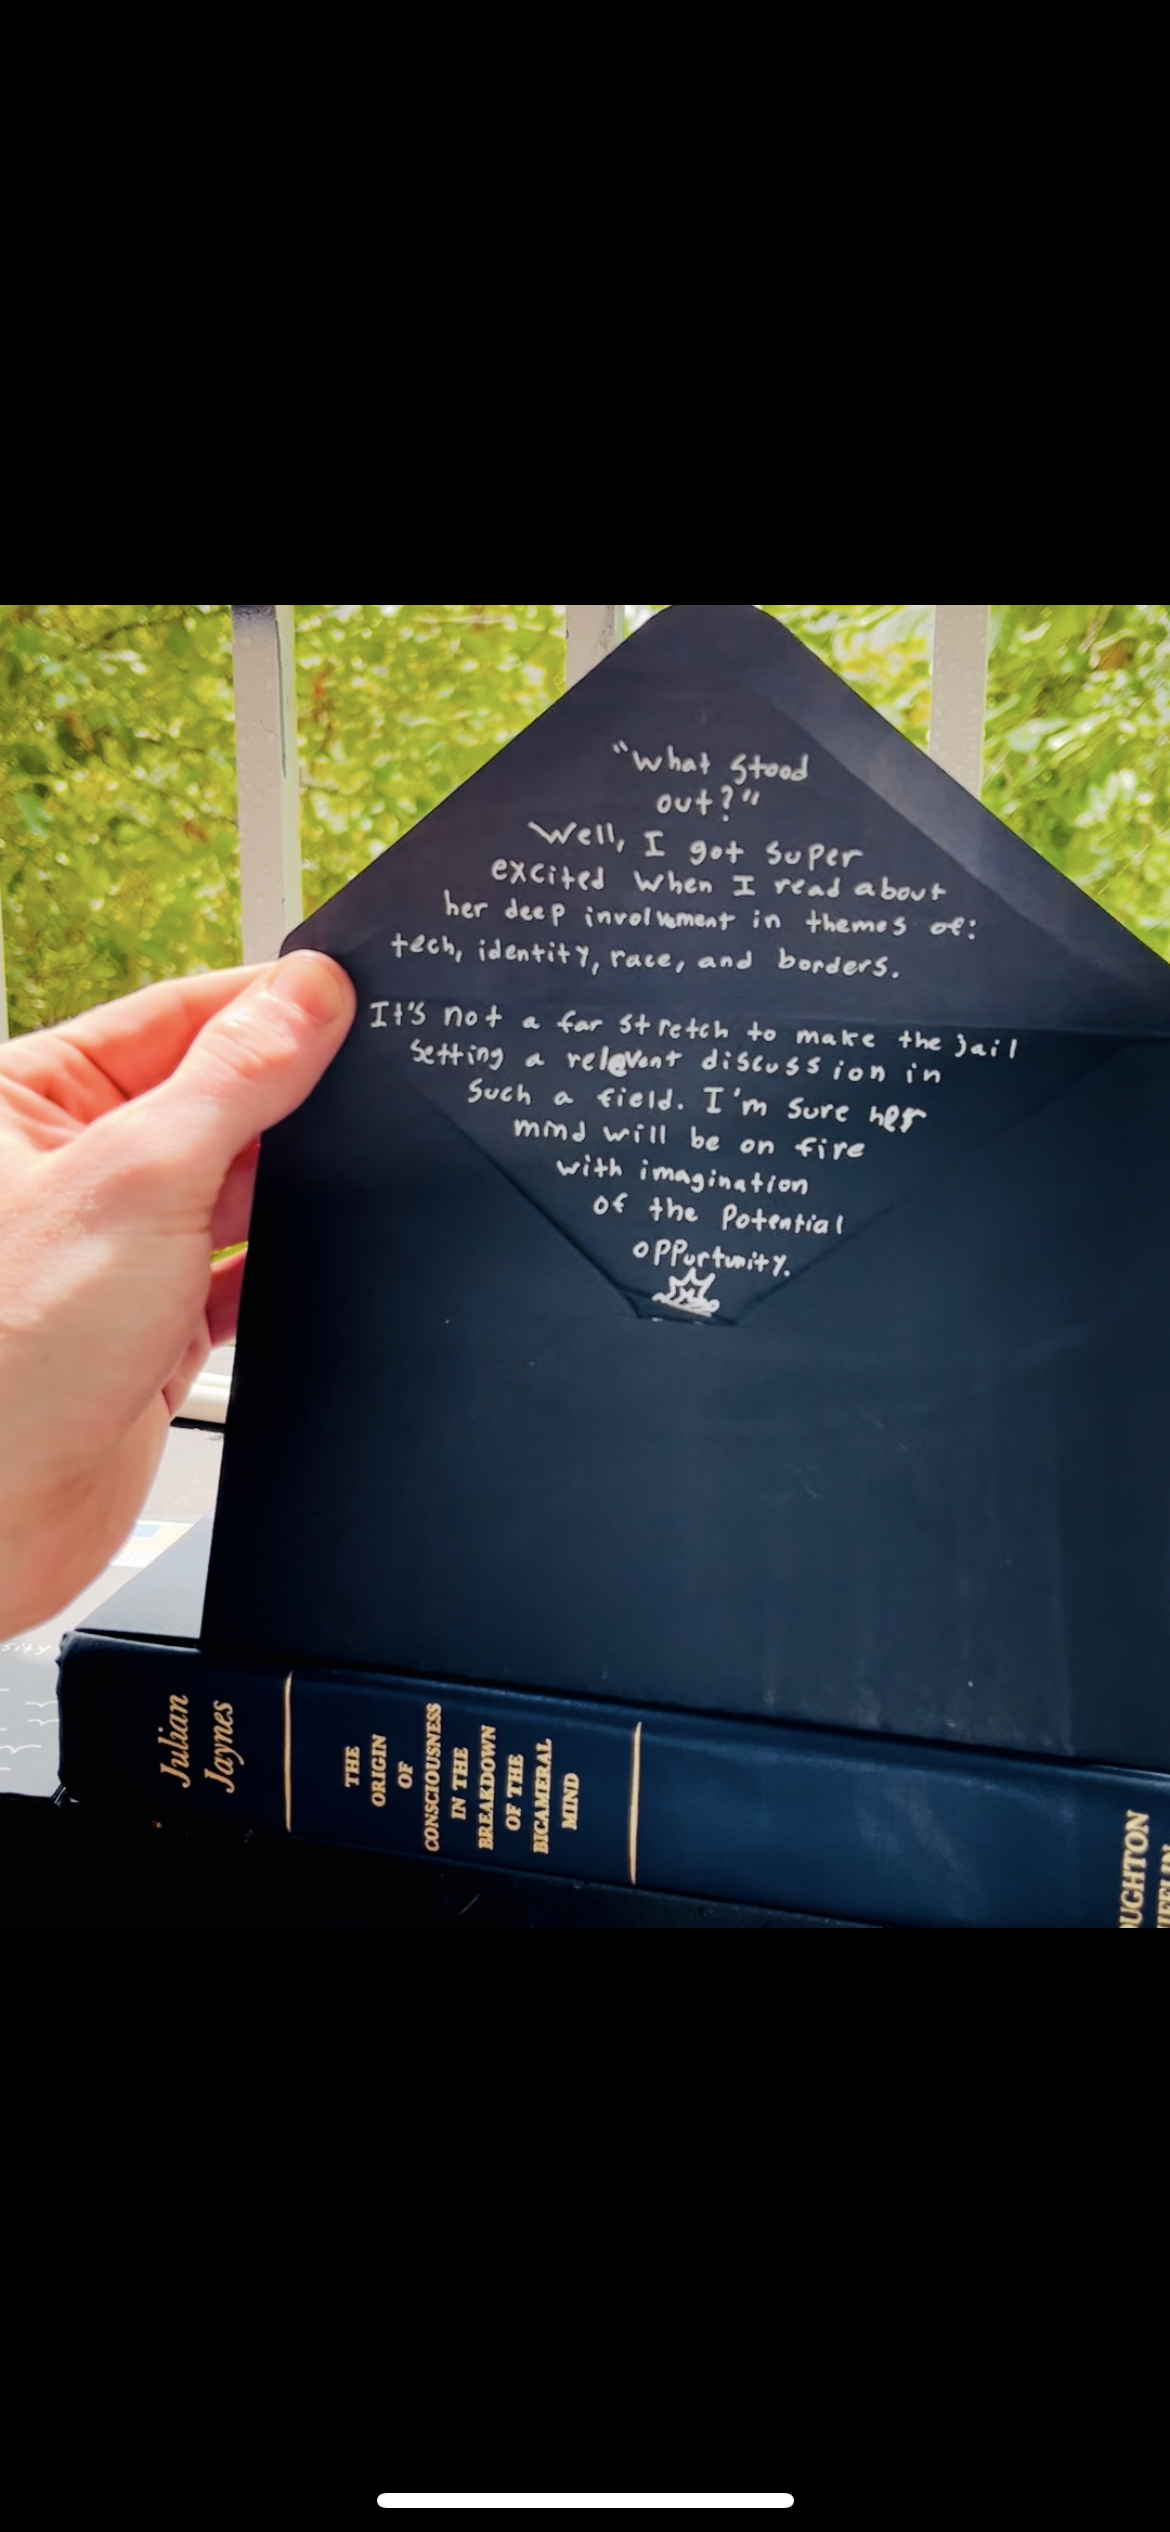 "What stood
out?"
Well, I got super
excited when I read about
her deep involvement in themes of:
tech, identity, race, and borders.
It's not a far stretch to make the jail
setting a relevent discussion in
such a field. I'm sure her
mind will be on fire
with imagination
of the potential
oppurtunity.
Julian
Jaynes
THE
ORIGIN
OF
CONSCIOUSNESS
IN THE
BREAKDOWN
OF THE
BICAMERAL
MIND
OUGHTON